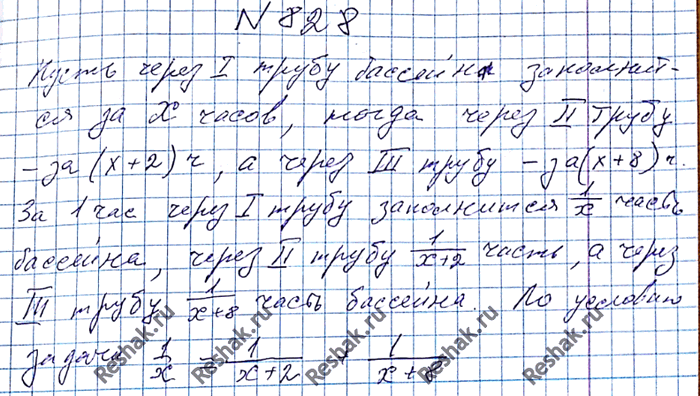 № 828
Пусть через I трубу бассейн заполнит-
ся за x часов, тогда через II трубу
– за (x+2) ч, а через III трубу – за (x+8) ч.
За 1 час через I трубу заполнится 1/x часть
бассейна, через II трубу 1/(x+2) часть, а через
III трубу 1/(x+8) часть бассейна. По условию
задачи 1/x = 1/(x+2) + 1/(x+8)
Reshak.ru Reshak.ru Reshak.ru Reshak.ru Reshak.ru Reshak.ru